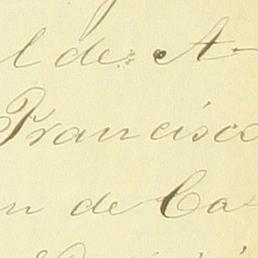 l de A-
Francisco
n de Ca-